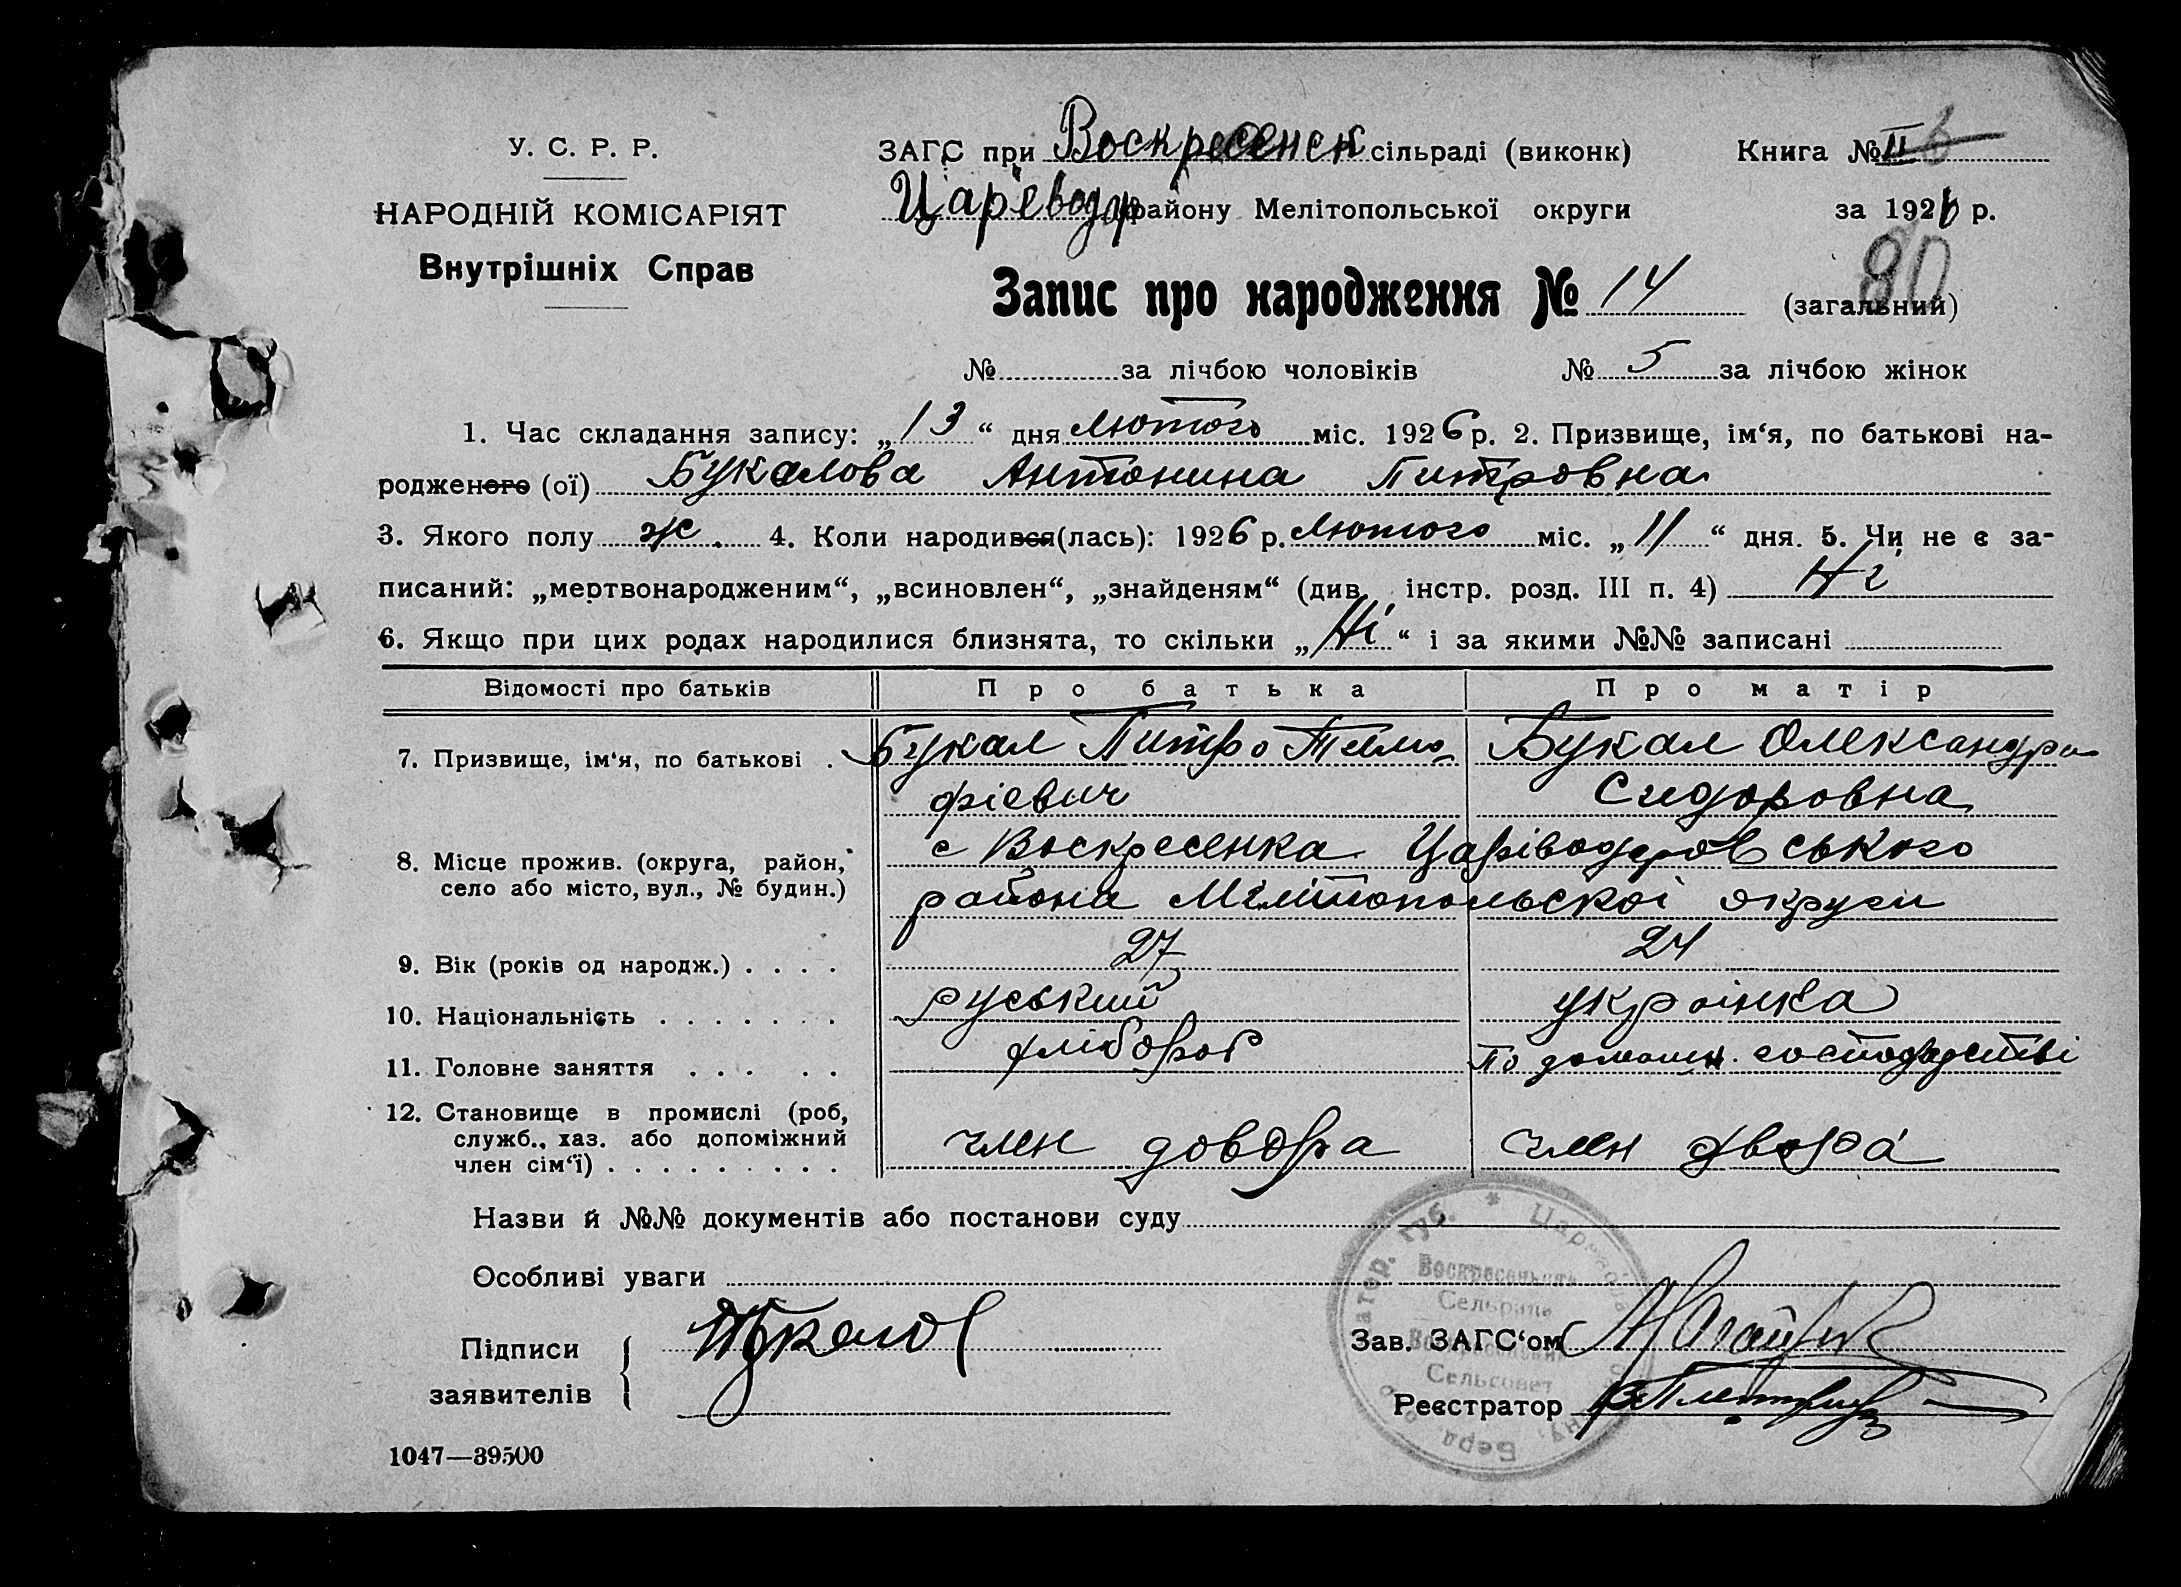 У. С. Р. Р.
НАРОДНІЙ КОМІСАРІЯТ
Внутрішніх Справ
ЗАГС при Воскресенск сільраді (виконк)
Цареводр району Мелітопольської округи
Книга № II
за 1926 р.
80
Запис про народження № 14 (загальний)
№ за лічбою чоловіків № 5 за лічбою жінок
1. Час складання запису: „13“ дня лютого міс. 1926 р. 2. Призвище, ім‘я, по батькові на-
родженого (ої) Букалова Антонина Питровна
3. Якого полу ж. 4. Коли народився(лась): 1926 р. лютого міс. „11“ дня. 5. Чи не є за-
писаний: „мертвонародженим“, „всиновлен“, „знайденям“ (див. інстр. розд. III п. 4) Ні
6. Якщо при цих родах народилися близнята, то скільки „Ні“ і за якими №№ записані
Відомості про батьків Про батька Про матір
7. Призвище, ім‘я, по батькові . Букал Питро Тимо Букал Олександра
фіевич Сидоровна
8. Місце прожив. (округа, район, с Воскресенка Царіводровського
село або місто, вул., № будин.) района Мелітопольскоі округи
9. Вік (років од народж.) . . . . 27 24
10. Національність . . . . . . . руський украінка
11. Головне заняття . . . . . хлібороб По домашн. господарстві
12. Становище в промислі (роб,
служб., хаз. або допоміжний член довора член двора
член сім‘ї) . . . . . . . . .
Назви й №№ документів або постанови суду
Особливі уваги
Підписи
заявителів
Букалов
Зав. ЗАГС‘ом
Реєстратор
Воскресенська
Сельрада
Сельсовет
1047—39500